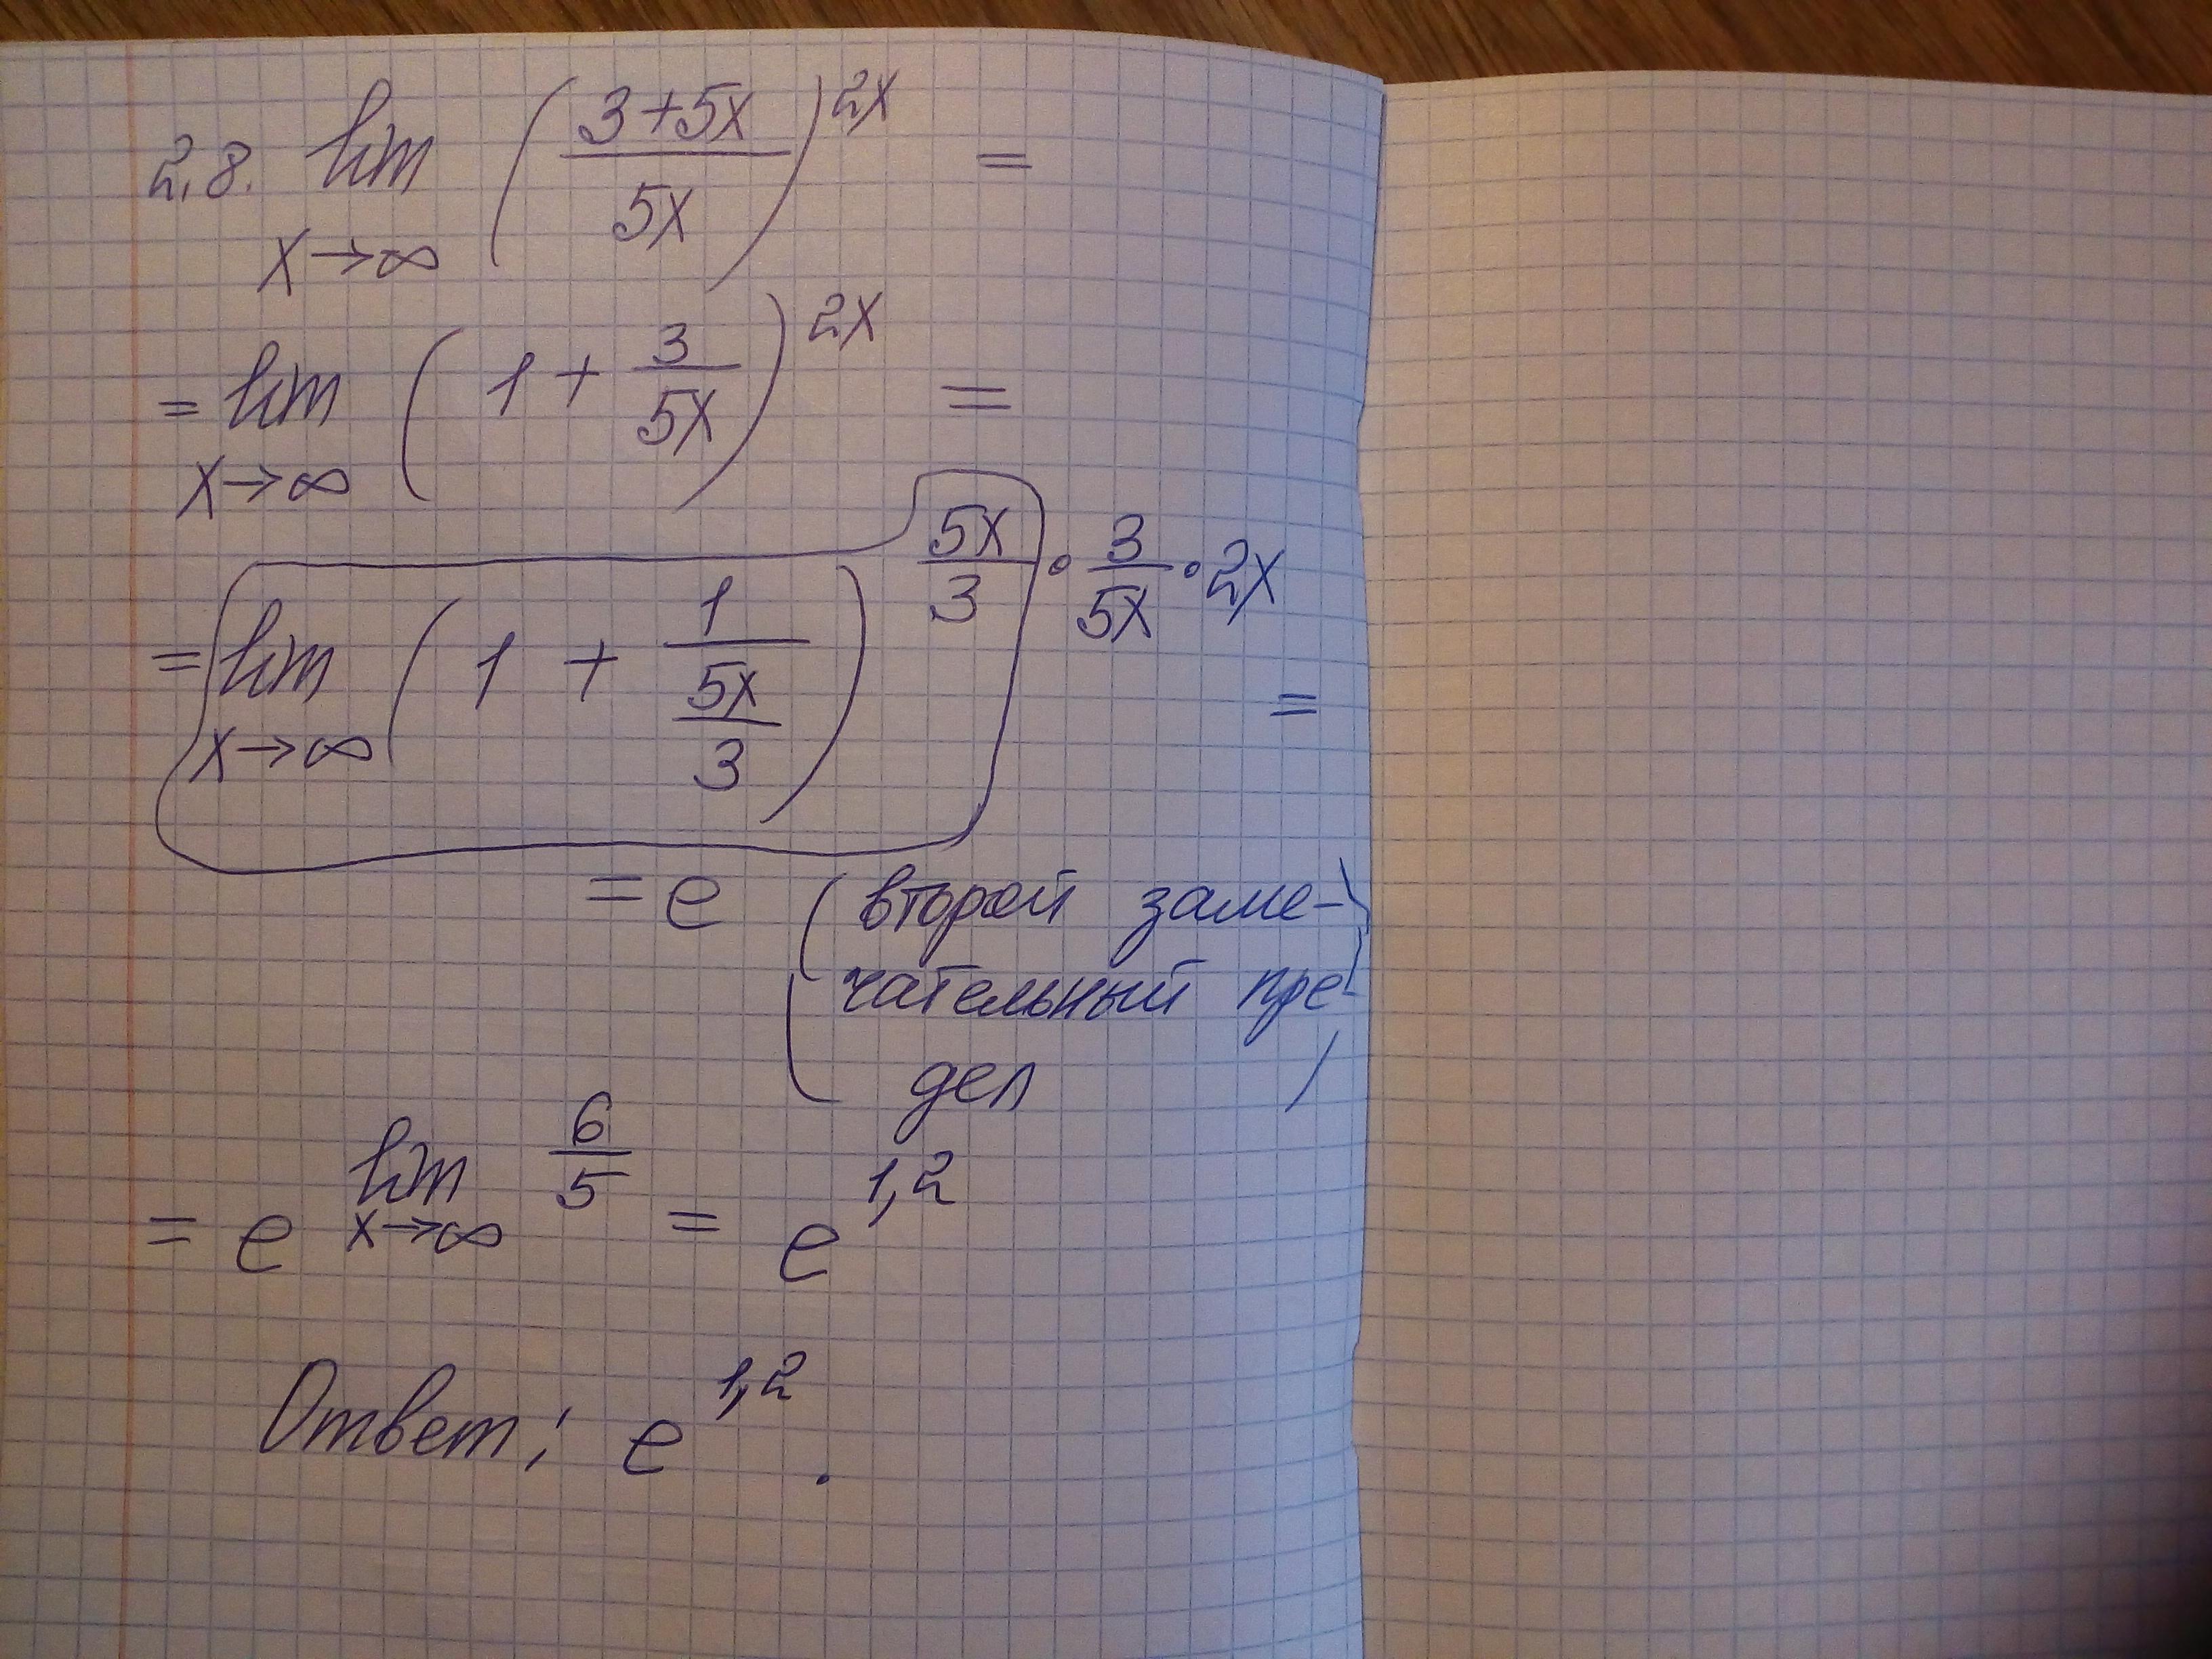 2.8. lim x→∞ ((3+5x)/(5x))^(2x) =
= lim x→∞ (1 + 3/(5x))^(2x) =
= lim x→∞ (1 + 1/((5x)/3))^((5x)/3 · 3/(5x) · 2x) =
= e (второй заме-
чательный пре-
дел)
= e^(lim x→∞ 6/5) = e^(1,2)
Ответ: e^(1,2).